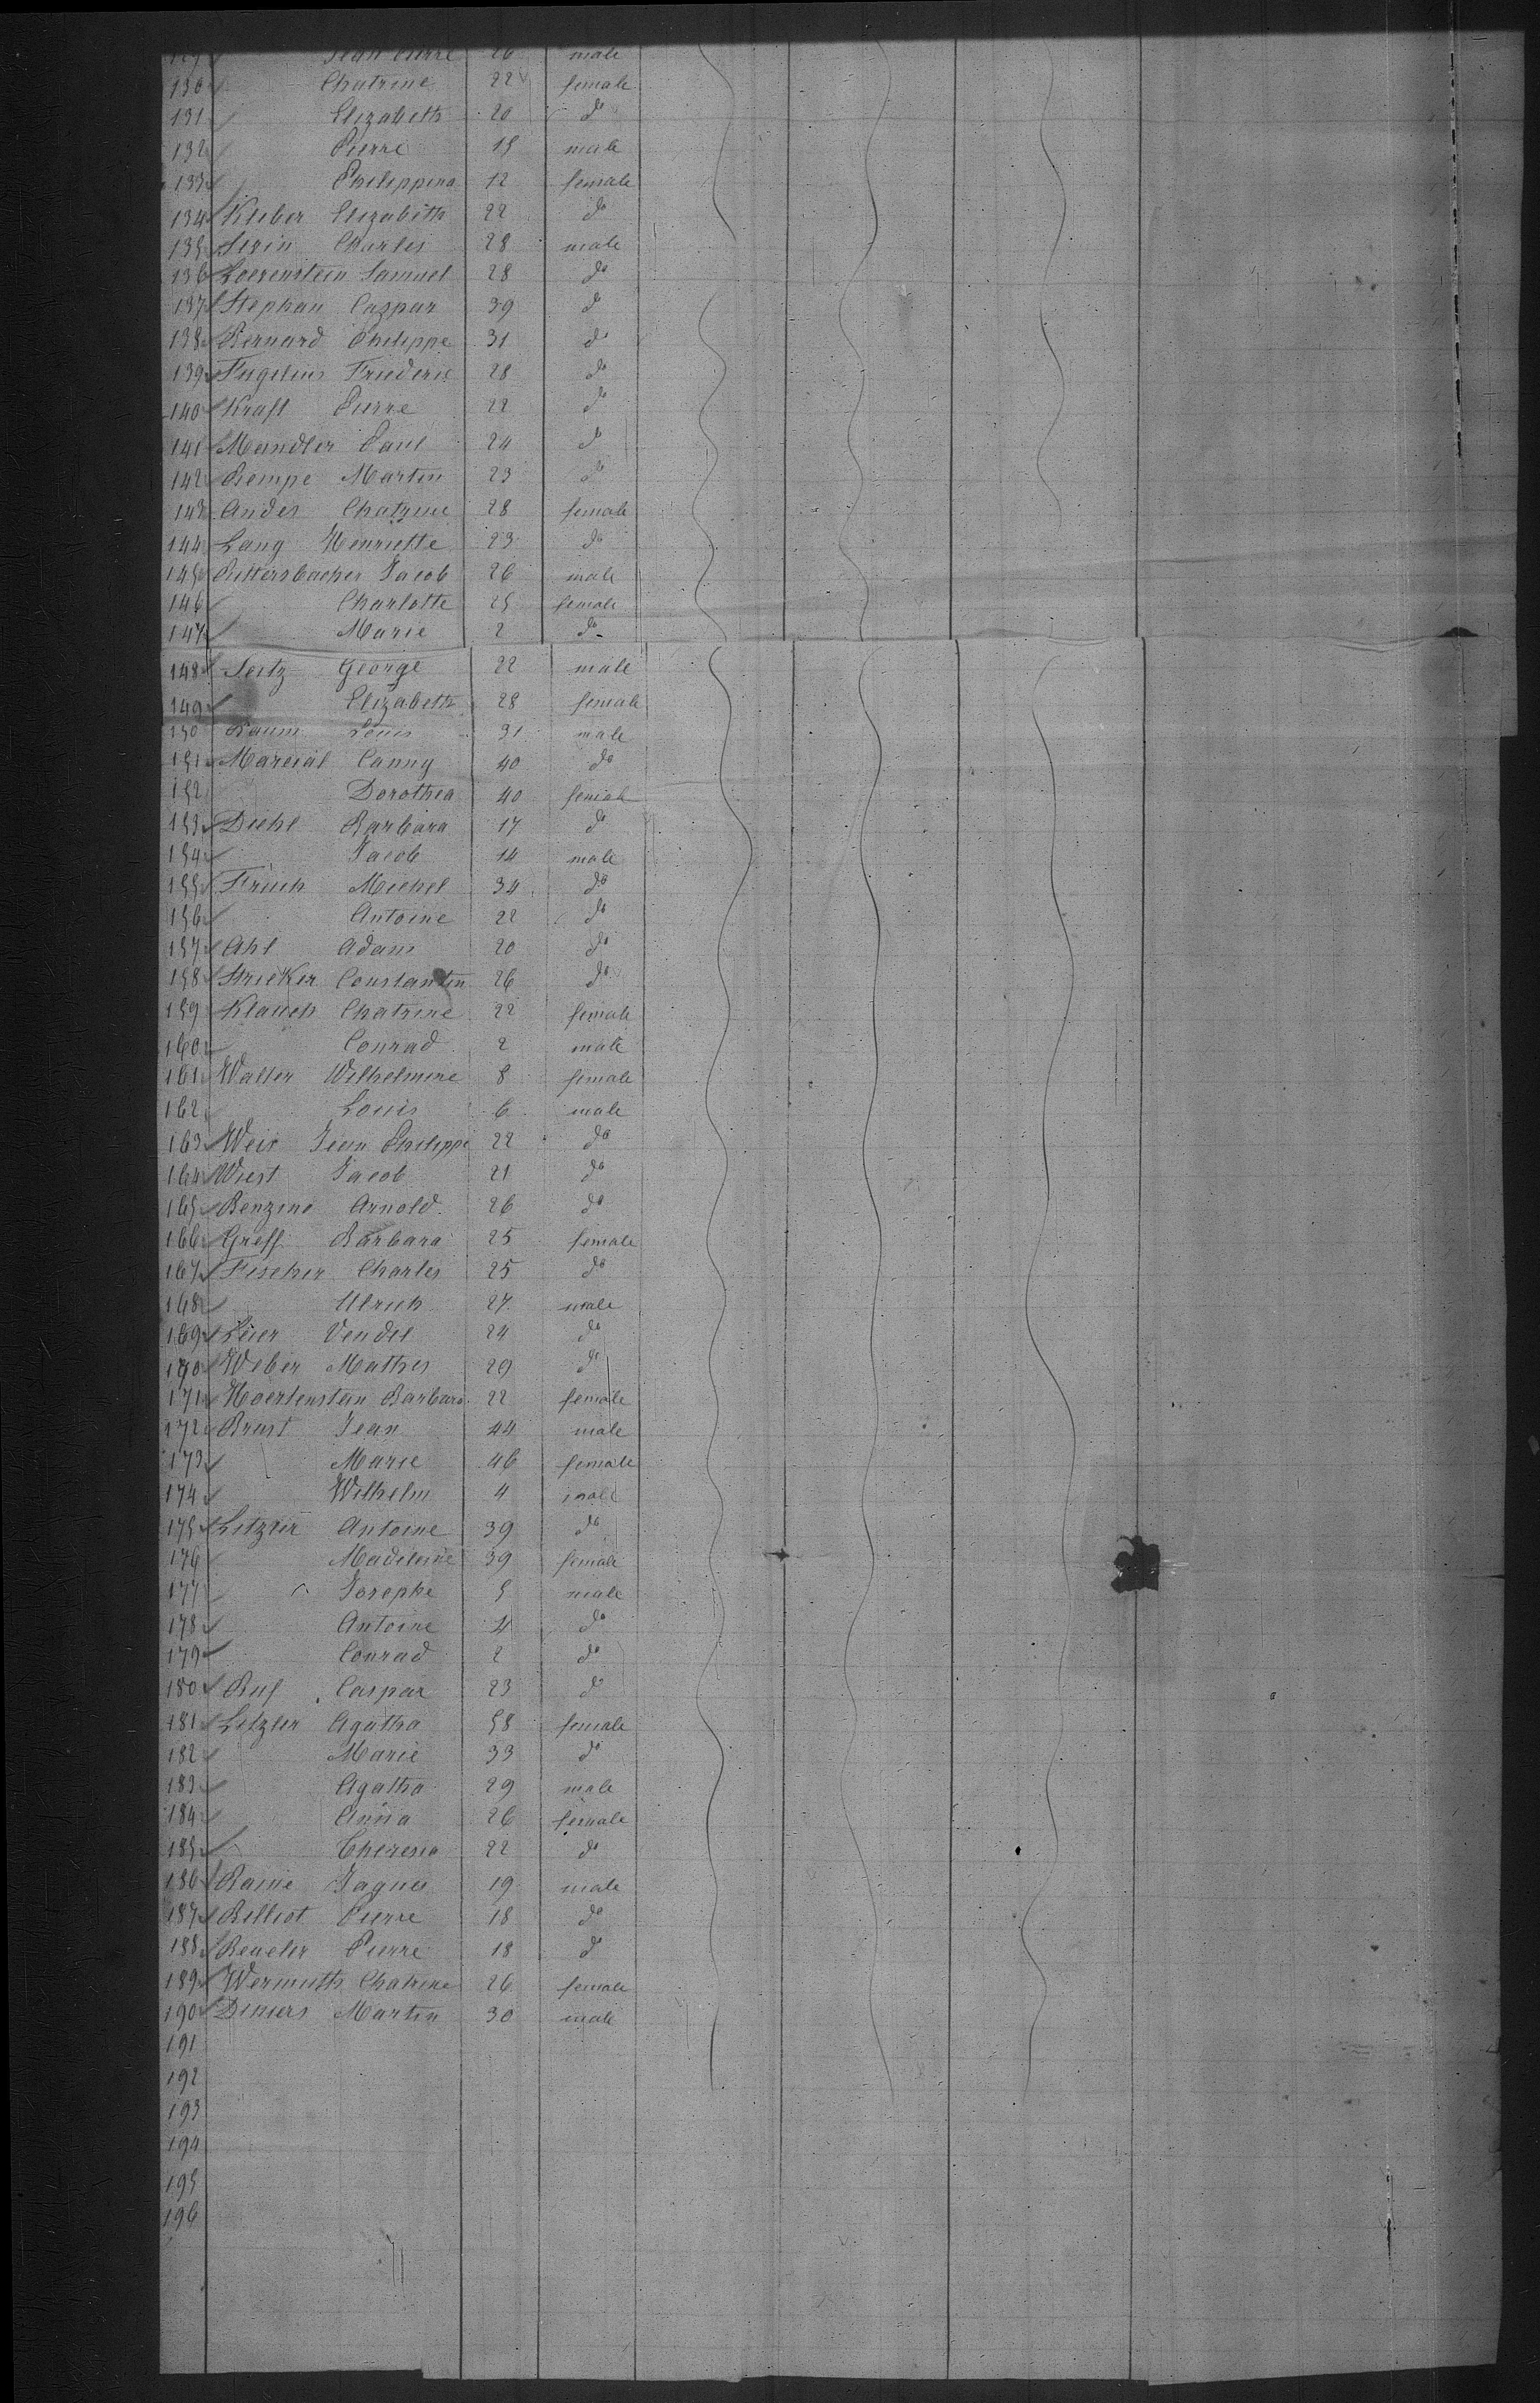 Jean Pierre 26 male
130 Chatrine 22 female
131 Elizabeth 20 do
132 Pierre 15 male
133 Philippina 12 female
134 Kleber Elizabeth 22 do
135 Serin Charles 28 male
136 Loevenstein Samuel 28 do
137 Stephan Caspar 39 do
138 Bernard Philippe 31 do
139 Fugelius Friederic 28 do
140 Kraft Pierre 22 do
141 Mandler Paul 24 do
142 Rempe Martin 23 do
143 Andes Chatrine 28 female
144 Lang Henriette 23 do
145 Puttersbacher Jacob 26 male
146 Charlotte 25 female
147 Marie 2 do
148 Seitz George 22 male
149 Elizabeth 28 female
150 Baum Louis 31 male
151 Marcial Canny 40 do
152 Dorothea 40 female
153 Diehl Barbara 17 do
154 Jacob 14 male
155 Frich Michel 34 do
156 Antoine 22 do
157 Ahl Adam 20 do
158 Stricker Constantin 26 do
159 Klauch Chatrine 22 female
160 Conrad 2 male
161 Walter Wilhelmine 8 female
162 Louis 6 male
163 Weis Jean Philippe 22 do
164 Wiest Jacob 21 do
165 Benzino Arnold 26 do
166 Greff Barbara 25 female
167 Fischer Charles 25 do
168 Ulrich 27 male
169 Leier Vendel 24 do
170 Weber Mathes 29 do
171 Hoertenstein Barbara 22 female
172 Brust Jean 44 male
173 Marie 46 female
174 Wilhelm 4 male
175 Litzler Antoine 39 do
176 Madeleine 39 female
177 Josephe 5 male
178 Antoine 4 do
179 Conrad 2 do
180 Ruf Caspar 23 do
181 Litzler Agatha 58 female
182 Marie 33 do
183 Agatha 29 male
184 Anna 26 female
185 Theresia 22 do
186 Raine Jaques 19 male
187 Billiot Pierre 18 do
188 Beucler Pierre 18 do
189 Wermuth Chatrine 26 female
190 Diniers Martin 30 male
191
192
193
194
195
196